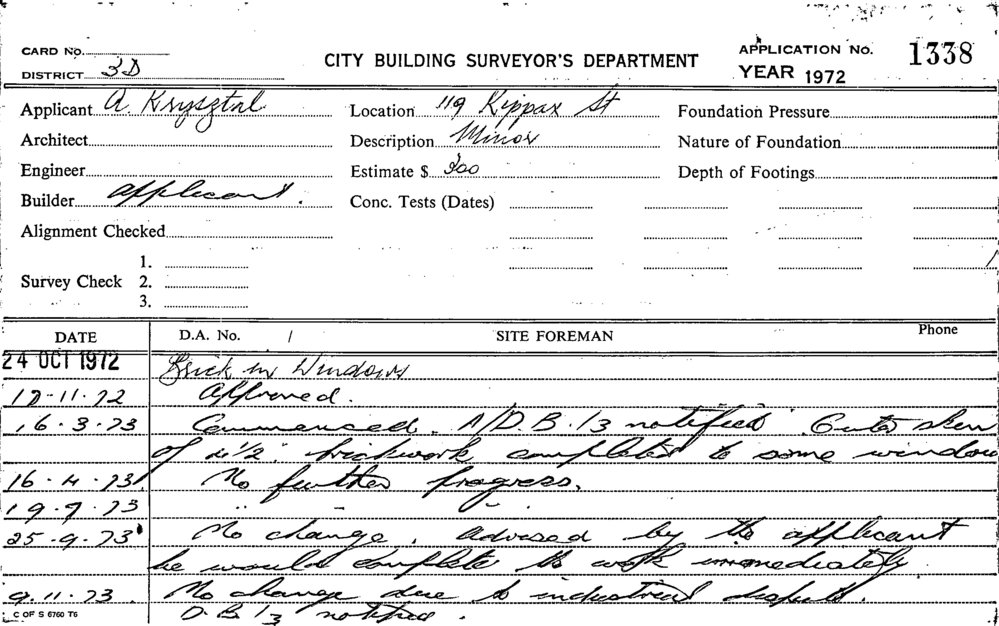 CARD No.
DISTRICT 3D
CITY BUILDING SURVEYOR'S DEPARTMENT
APPLICATION No. 1338
YEAR 1972
Applicant A. Krysztal
Location 119 Kippax St
Foundation Pressure
Architect
Description Minor
Nature of Foundation
Engineer
Estimate $ 300
Depth of Footings
Builder Applicant.
Conc. Tests (Dates)
Alignment Checked
Survey Check 1.
2.
3.
DATE D.A. No. / SITE FOREMAN Phone
24 OCT 1972 Brick in Windows
17-11-72 Approved.
16-3-73 Commenced. A/D.B.13 notified. Outer skin
of 4½" brickwork completed to some window
16-4-73 No further progress.
19-7-73 " " "
25-9-73 No change. Advised by the applicant
he would complete the work immediately.
9.11.73. No change due to industrial dispute.
C OF S 6760 T6 D.B 13 notified.